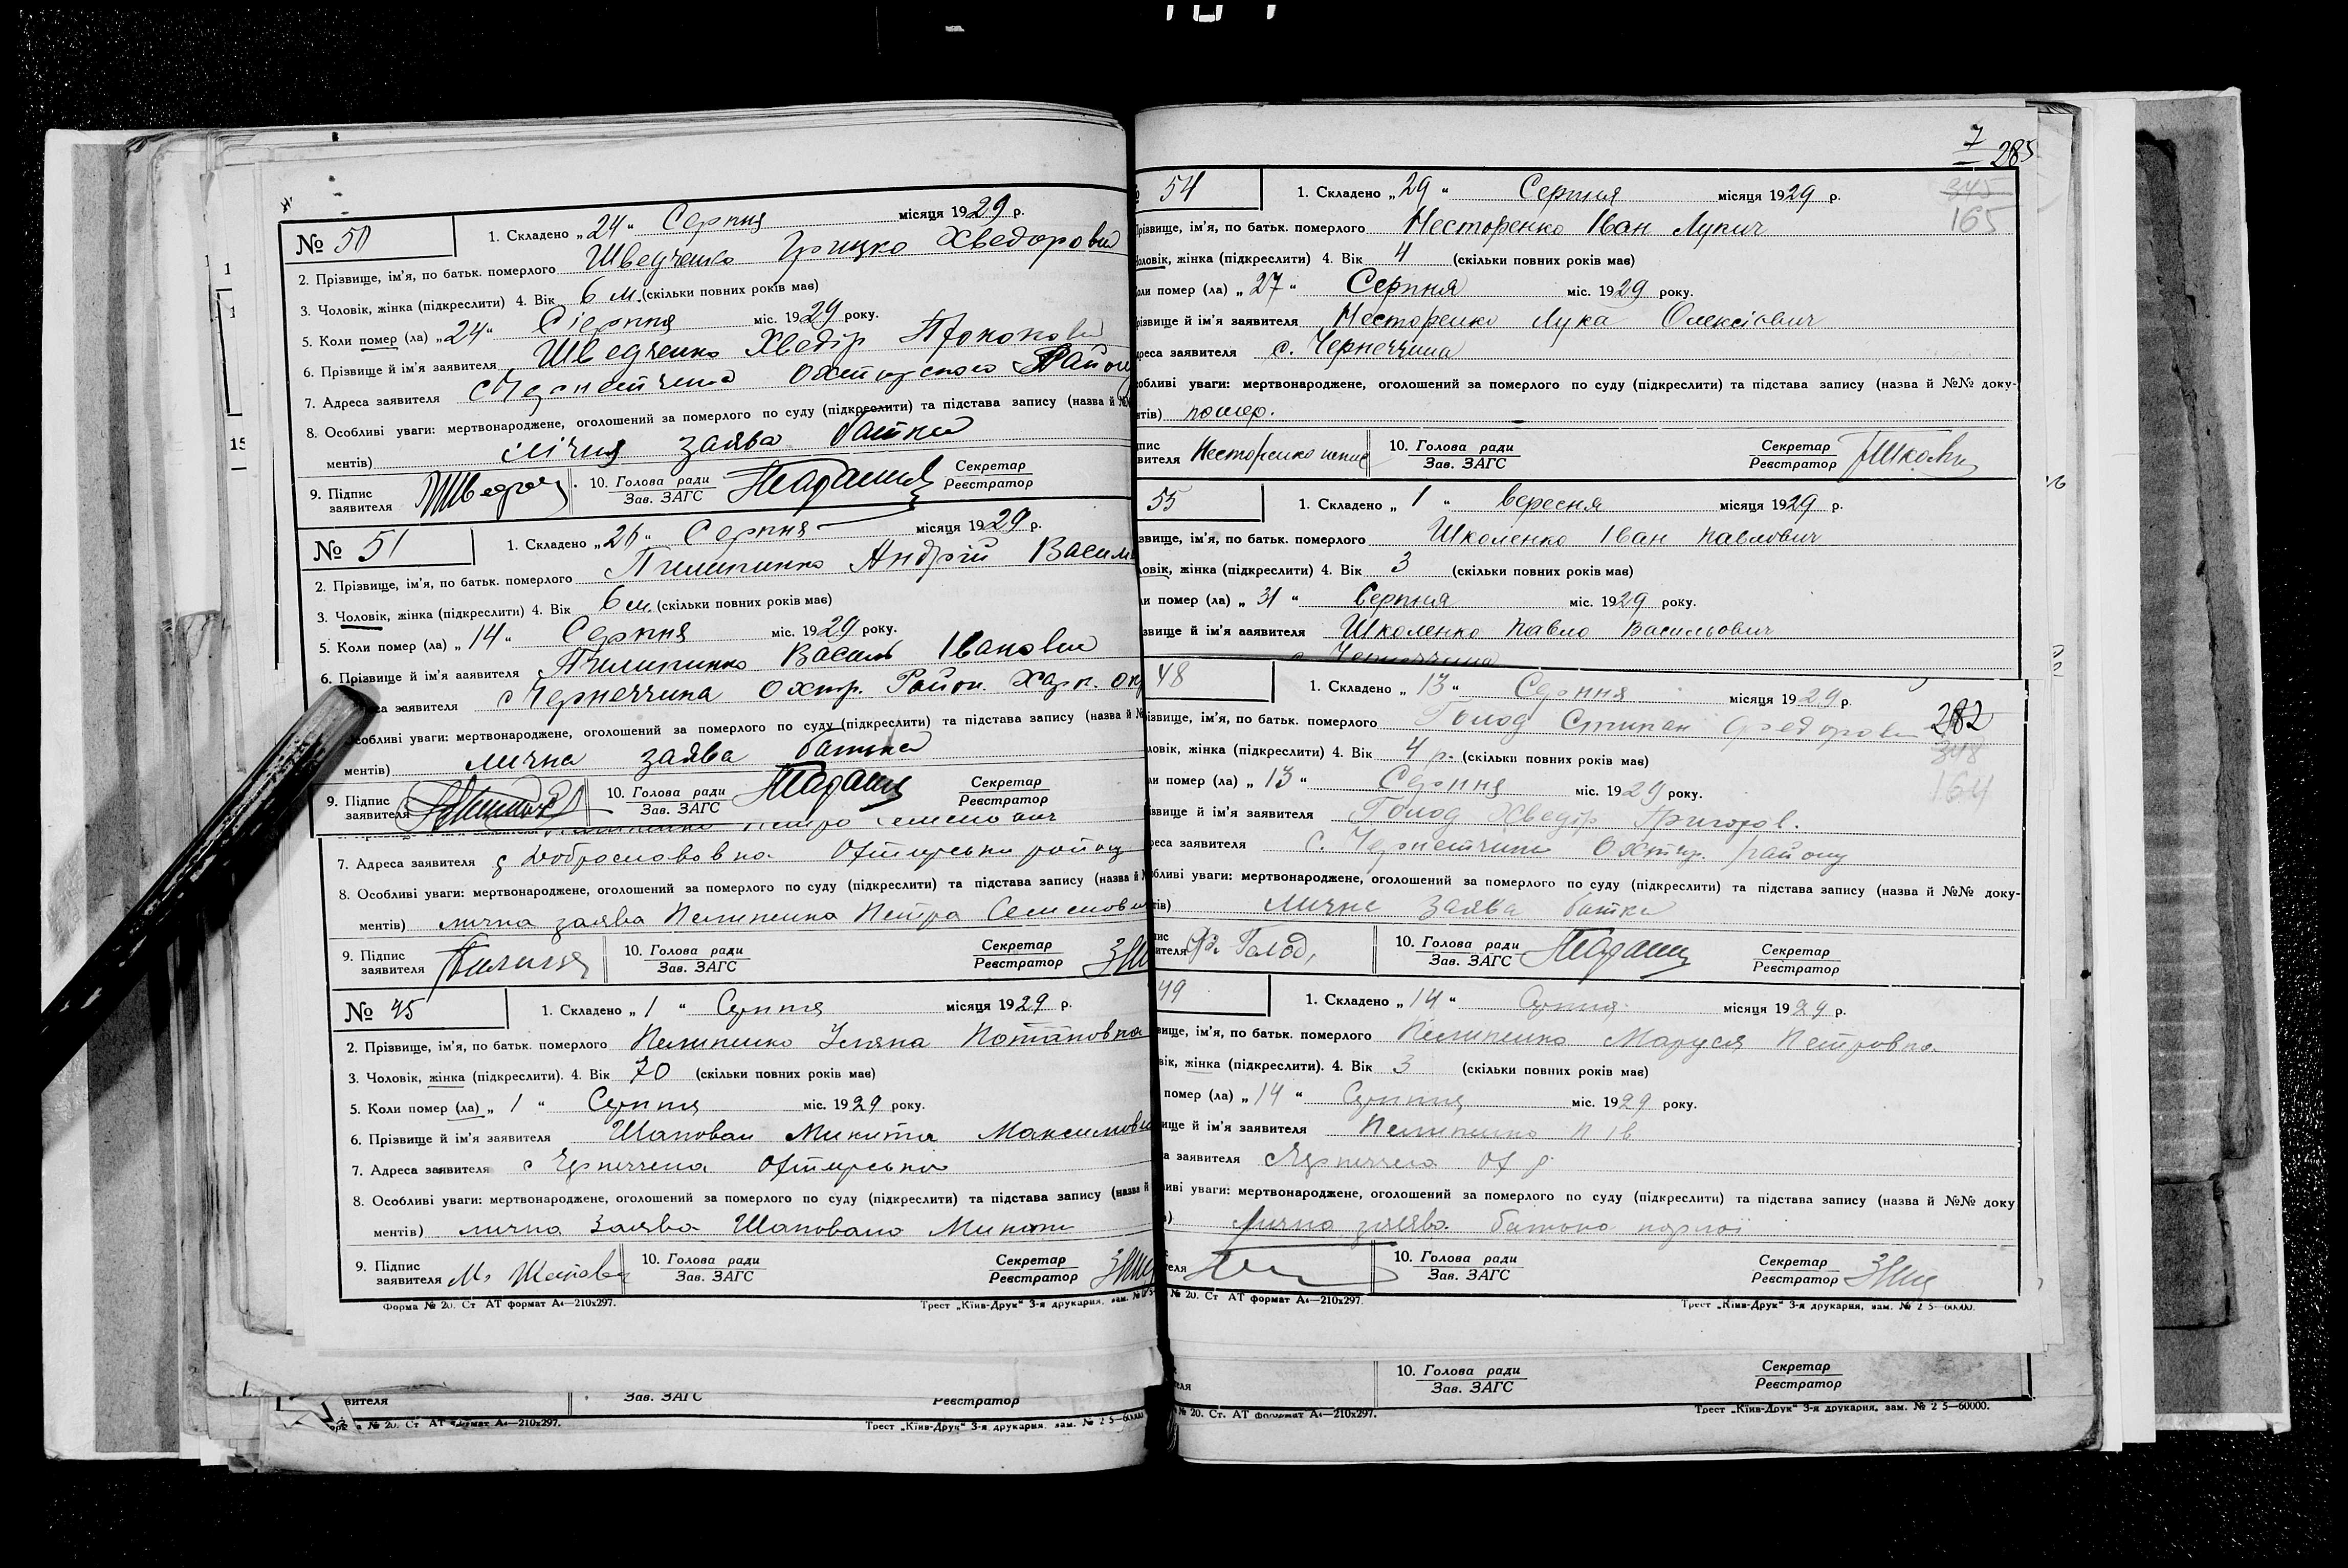 № 50
1. Складено „24“ Серпня місяця 1929 р.
2. Прізвище, ім'я, по батьк. померлого Шведченко Грицко Хведорови
3. Чоловік, жінка (підкреслити) 4. Вік 6 м. (скільки повних років має)
5. Коли помер (ла) „24“ Сіерпня міс. 1929 року.
6. Прізвище й ім'я заявителя Шведченко Хведір
7. Адреса заявителя Район
8. Особливі уваги: мертвонароджене, оголошений за померлого по суду (підкреслити) та підстава запису (назва й
ментів) заява батка
9. Підпис заявителя
10. Голова ради
Зав. ЗАГС
Секретар
Реєстратор
№ 51
1. Складено „26“ Серпня місяця 1929 р.
2. Прізвище, ім'я, по батьк. померлого Андрій Васил
3. Чоловік, жінка (підкреслити) 4. Вік 6 м. (скільки повних років має)
5. Коли помер (ла) „14“ Серпня міс. 1929 року.
6. Прізвище й ім'я заявителя Василь Іванови
заявителя с Чернеччина Охтир. Район. Харк. Ок
Особливі уваги: мертвонароджене, оголошений за померлого по суду (підкреслити) та підстава запису (назва й №
ментів) лична заява батька
9. Підпис заявителя
10. Голова ради
Зав. ЗАГС
Секретар
Реєстратор
7. Адреса заявителя Доброславовка
8. Особливі уваги: мертвонароджене, оголошений за померлого по суду (підкреслити) та підстава запису (назва й
ментів) лична заява Пелипенка Петра Семенови
9. Підпис заявителя
10. Голова ради
Зав. ЗАГС
Секретар
Реєстратор
№ 45
1. Складено „1“ Серпня місяця 1929 р.
2. Прізвище, ім'я, по батьк. померлого Пелипенко Уляна Потаповна
3. Чоловік, жінка (підкреслити). 4. Вік 70 (скільки повних років має)
5. Коли помер (ла) „1“ Серпня міс. 1929 року.
6. Прізвище й ім'я заявителя Шаповал Микита Максимови
7. Адреса заявителя с
8. Особливі уваги: мертвонароджене, оголошений за померлого по суду (підкреслити) та підстава запису (назва й
ментів) лична заява Шаповала Микити
9. Підпис заявителя М. Шапов
10. Голова ради
Зав. ЗАГС
Секретар
Реєстратор
Форма № 20. Ст АТ формат А4—210х297.
Трест „Київ-Друк“ 3-я друкарня, зам. №
вителя
Зав. ЗАГС
Реєстратор
№ 20. Ст. АТ формат А4—210х297.
Трест „Київ-Друк“ 3-я друкарня, зам. № 2 5—60000
7
285
345
165
54
1. Складено „29“ Серпня місяця 1929 р.
Прізвище, ім'я, по батьк. померлого Несторенко Іван Лукич
Чоловік, жінка (підкреслити) 4. Вік 4 (скільки повних років має)
Коли помер (ла) „27“ Серпня міс. 1929 року.
різвище й ім'я заявителя Несторенко Лука Олексієвич
дреса заявителя с. Чернеччина
обливі уваги: мертвонароджене, оголошений за померлого по суду (підкреслити) та підстава запису (назва й №№ доку-
нтів) помер.
пис
вителя Несторенко
10. Голова ради
Зав. ЗАГС
Секретар
Реєстратор
55
1. Складено „1“ Вересня місяця 1929 р.
звище, ім'я, по батьк. померлого Школенко Іван Павлович
овік, жінка (підкреслити) 4. Вік 3 (скільки повних років має)
ли помер (ла) „31“ Серпня міс. 1929 року.
звище й ім'я заявителя Школенко Павло Васильович
с Чернеччина
48
1. Складено „13“ Серпня місяця 1929 р.
282
348
164
ізвище, ім'я, по батьк. померлого Голод Степан Федорови
ловік, жінка (підкреслити) 4. Вік 4 р. (скільки повних років має)
ли помер (ла) „13“ Серпня міс. 1929 року.
ізвище й ім'я заявителя Голод Хведір Григоров.
реса заявителя с. Охтир. району
обливі уваги: мертвонароджене, оголошений за померлого по суду (підкреслити) та підстава запису (назва й №№ доку-
тів) лична заява батка
пис
вителя Голод
10. Голова ради
Зав. ЗАГС
Секретар
Реєстратор
49
1. Складено „14“ Серпня місяця 1929 р.
вище, ім'я, по батьк. померлого Пелипенко Маруся Петровна
вік, жінка (підкреслити). 4. Вік 3 (скільки повних років має)
помер (ла) „14“ Серпня міс. 1929 року.
ище й ім'я заявителя Пелипенко П Ів
а заявителя
ливі уваги: мертвонароджене, оголошений за померлого по суду (підкреслити) та підстава запису (назва й №№ доку
лична заява батька
10. Голова ради
Зав. ЗАГС
Секретар
Реєстратор
№ 20. Ст АТ формат А4—210х297.
Трест „Київ-Друк“ 3-я друкарня, зам. № 2 5—60000.
10. Голова ради
Зав. ЗАГС
Секретар
Реєстратор
№ 20. Ст. АТ формат А4—210х297.
Трест „Київ-Друк“ 3-я друкарня, зам. № 2 5—60000.